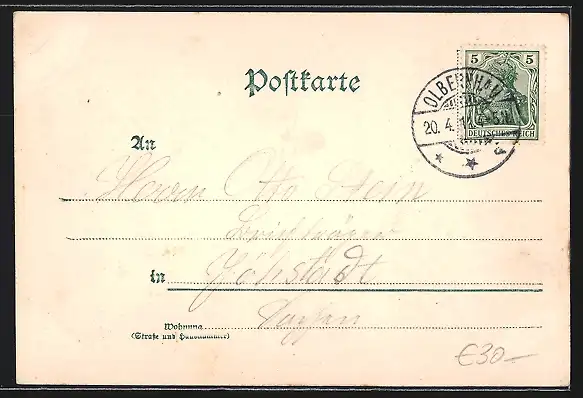 Postkarte
5 5
DEUTSCHES REICH
OLBERNHAU
20. 4.
An
Herrn Otto Stein
Briefträger
in Jöhstadt
Sachsen
Wohnung
(Straße und Hausnummer)
€30–